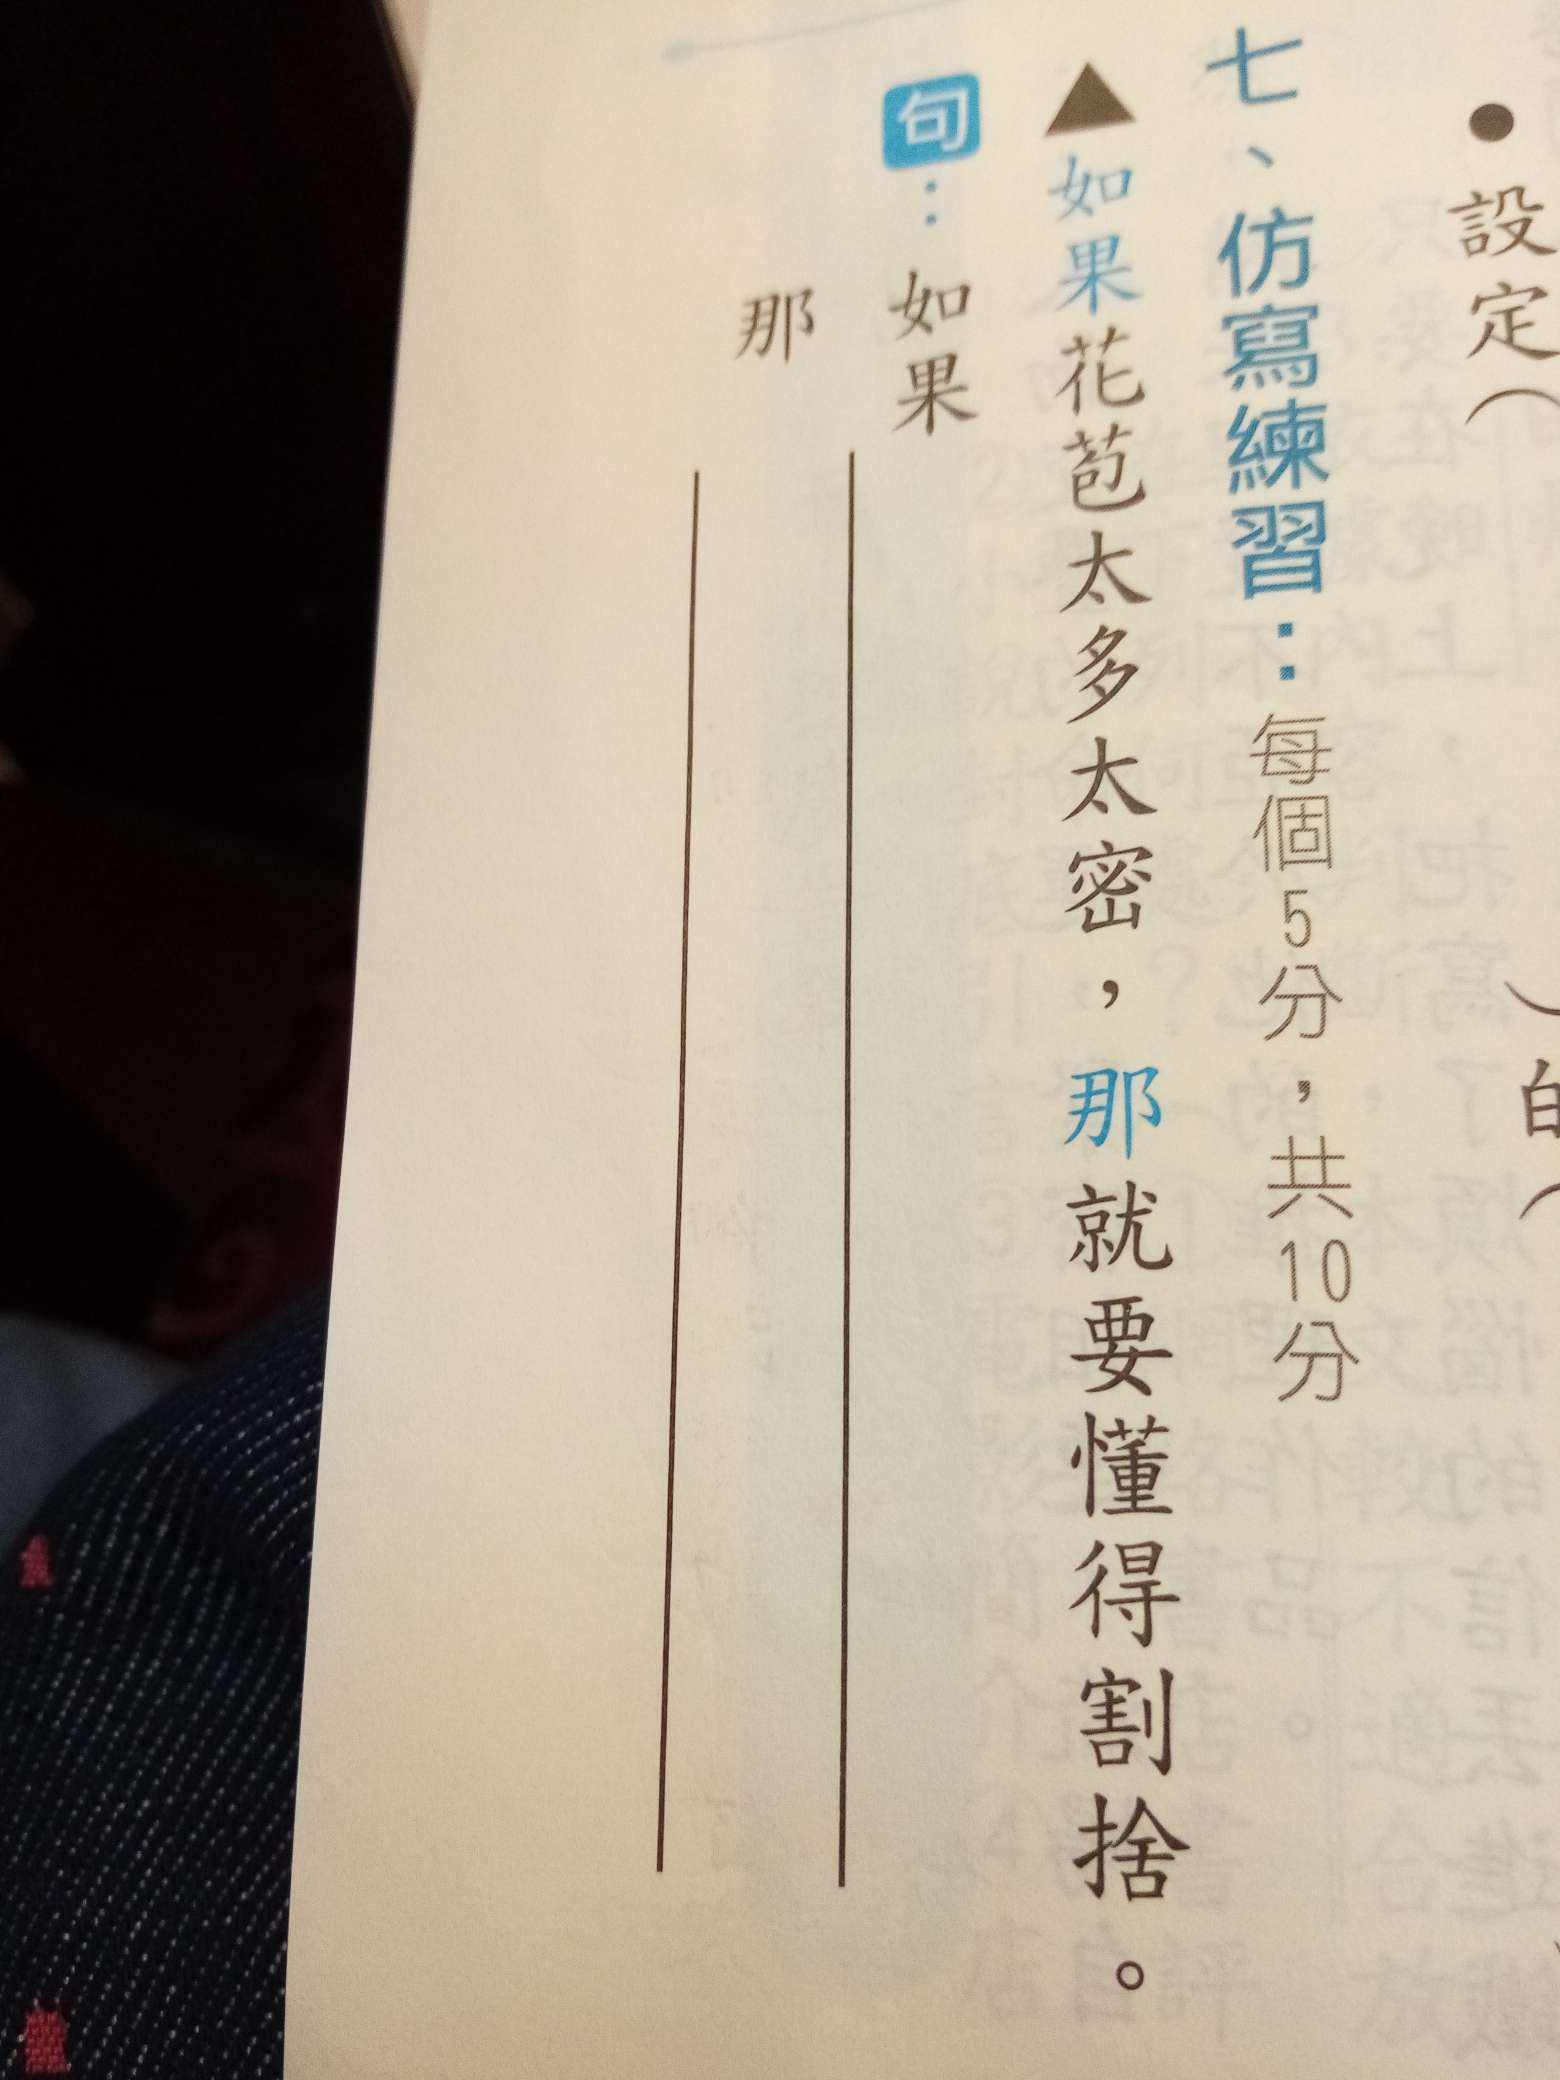 ●設定（　）的（
七、仿寫練習：每個5分，共10分
▲如果花苞太多太密，那就要懂得割捨。
句：如果
那